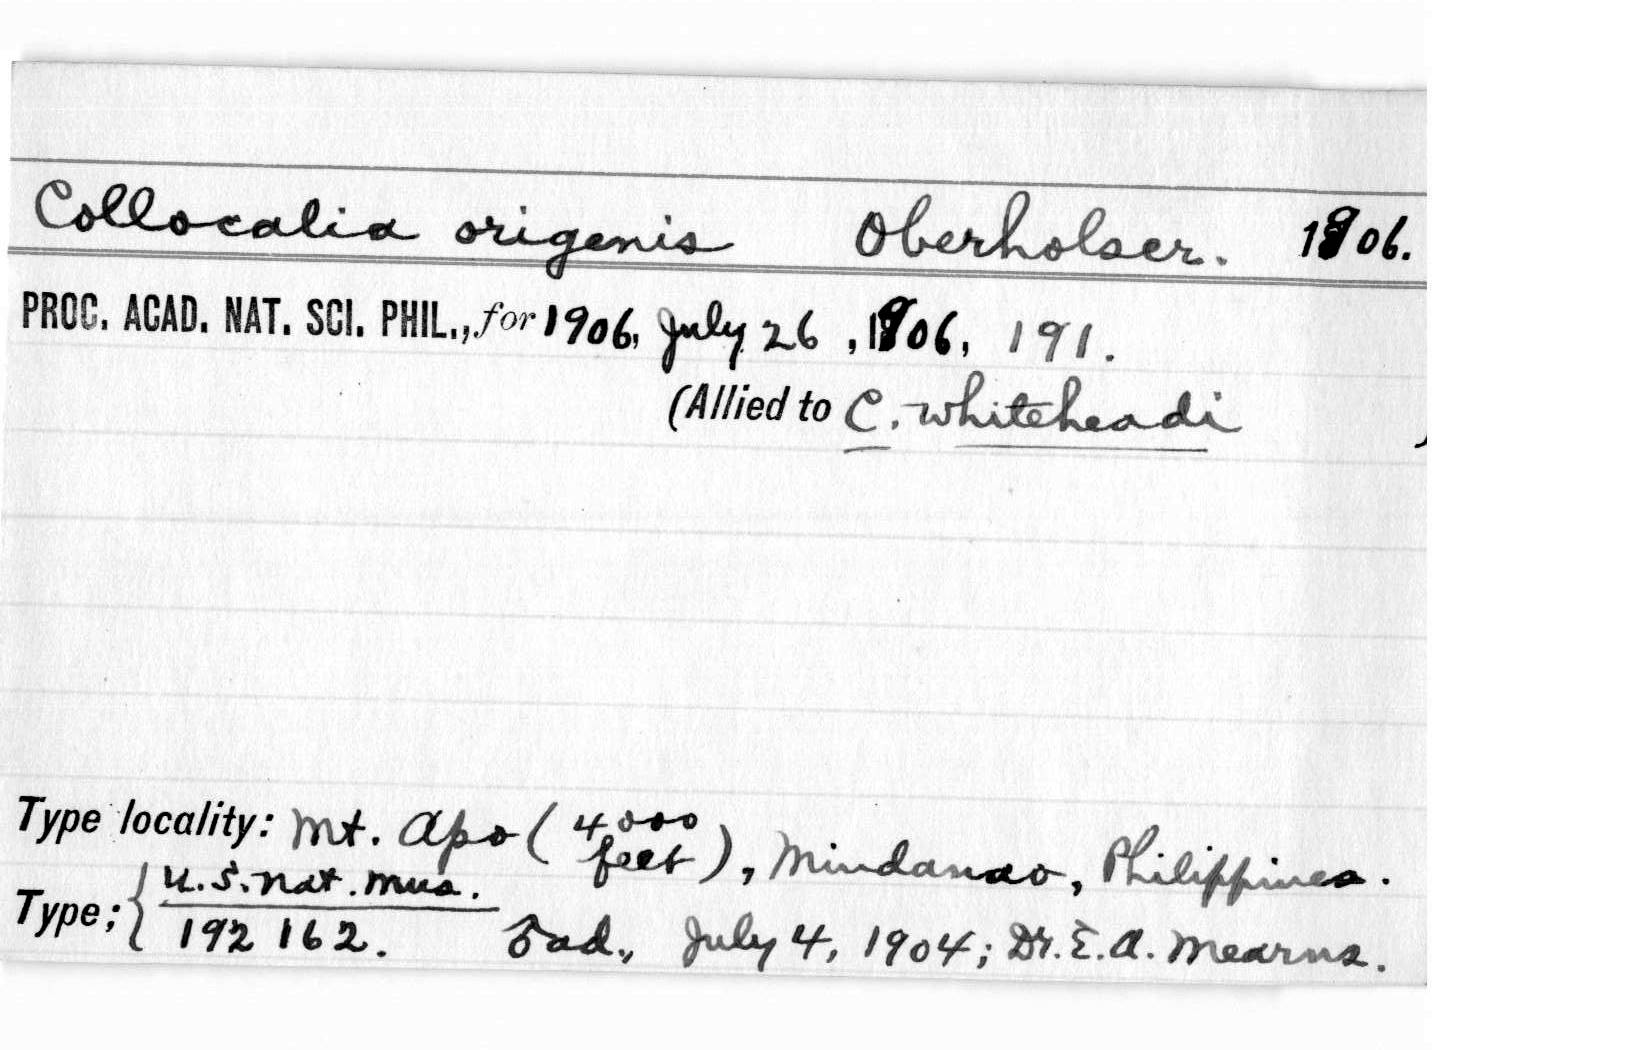 Collocalia origenis Oberholser. 1906.
PROC. ACAD. NAT. SCI. PHIL., for 1906, July 26, 1906, 191.
(Allied to C. whiteheadi )
Type locality: Mt. Apo (4000 feet), Mindanao, Philippines.
Type; { U.S. Nat. Mus.
192162. ♂ ad., July 4, 1904; Dr. E. A. Mearns.